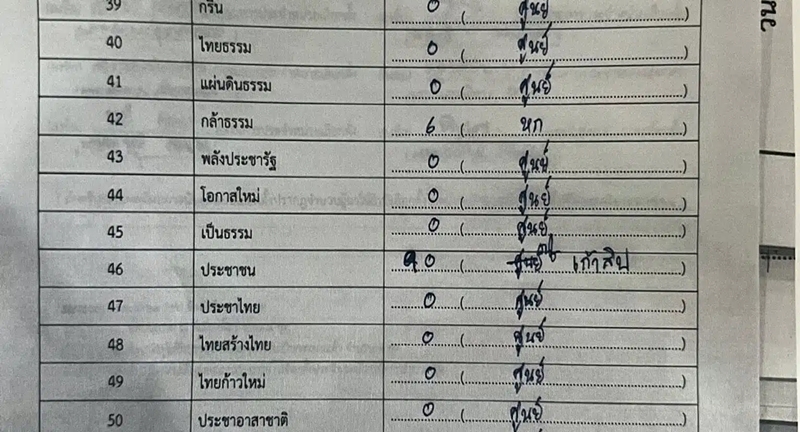 39 กรีน 0 ( ศูนย์ )
40 ไทยธรรม 0 ( ศูนย์ )
41 แผ่นดินธรรม 0 ( ศูนย์ )
42 กล้าธรรม 6 ( หก )
43 พลังประชารัฐ 0 ( ศูนย์ )
44 โอกาสใหม่ 0 ( ศูนย์ )
45 เป็นธรรม 0 ( ศูนย์ )
46 ประชาชน 90 ( ศูนย์ เก้าสิบ )
47 ประชาไทย 0 ( ศูนย์ )
48 ไทยสร้างไทย 0 ( ศูนย์ )
49 ไทยก้าวใหม่ 0 ( ศูนย์ )
50 ประชาอาสาชาติ 0 ( ศูนย์ )